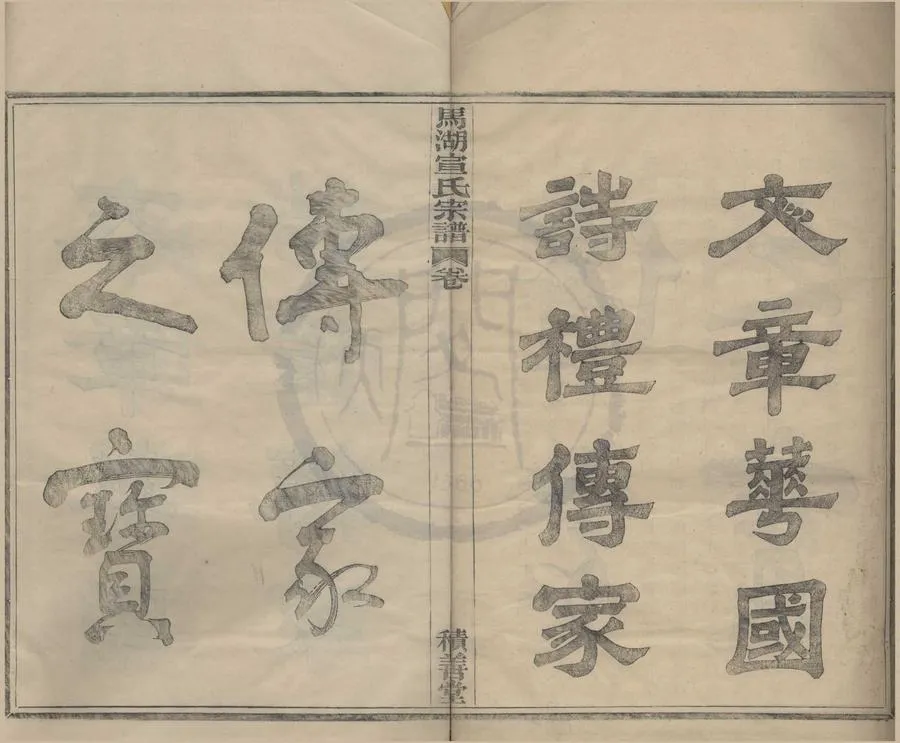 文章華國
詩禮傳家
馬湖宣氏宗譜 卷
積善堂
傳家
之寶